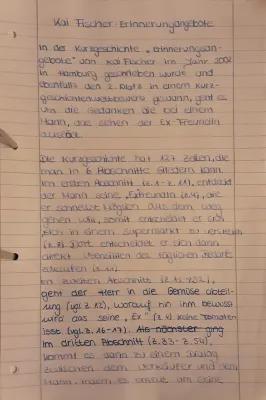 Kai Fischer: Erinnerungangebote
In der Kurzgeschichte "Erinnerungsan-
gebote" von Kai Fischer im Jahr 2002
in Hamburg geschrieben wurde und
ebenfalls den 2. Platz in einem Kurz-
geschichtenwettbewerb gewann, geht es
um die Gedanken die bei einem
Mann, das sehen der Ex-Freundin
auslöst.
Die Kurzgeschichte hat 127 Zeilen, die
man in 6 Abschnitte gliedern kann.
Im ersten Abschnitt (z.1-z.11), entdeckt
der Mann seine "Exfreundin" (z.4), die
er schnellst möglich aus dem Weg
gehen will, somit entscheidet er sich
sich in einem Supermarkt zu verstecken
Dort entscheidet er sich dann
direkt Utensilien des täglichen Bedarf
(z.11).
Im zweiten Abschnitt (z.12-z.32),
geht der Herr in die Gemüse abteil-
lung (vgl.z.12), worauf hin ihm bewusst
wird das seine "Ex" keine Tomaten
isst (vgl.z.16-17). Als nächster ging
im dritten Abschnitt (z.33-z.54),
kommt es dann zu einem Dialog
zwischen dem Verkäufer und dem
Mann, indem es um eine